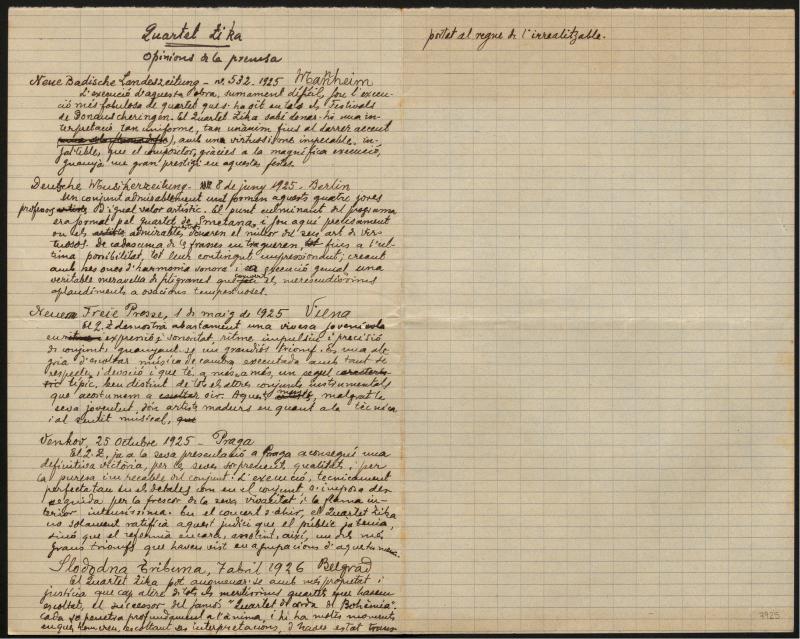 Quartet Zika
Opinions de la premsa
Neue Badische Landeszeitung - nº 532. 1925 Manheim
L'execució d'aquesta obra, sumament difícil, fou l'execu-
ció més fabulosa de quartet que s'ha git en tots els Festivals
de Donaueschingen. El Quartet Zika sabé donar-hi una in-
terpretació tan uniforme, tan unànim fins al darrer accent
, amb una virtuosisme impecable, in-
fal·lible, que el compositor, gràcies a la magnífica execució,
guanyà un gran prestigi en aquestes festes.
Deutsche Musikerzeitung - 8 de juny 1925 - Berlin
Un conjunt admirablement unit formen aquests quatre joves
professors artistes d'igual valor artístic. El punt culminant del programa
era format pel quartet de Smetana, i fou aquí precisament
on els artistes admirables donaren el millor del seu art de vir-
tuosos. De cadascuna de les frases en tragueren, tot fins a l'úl-
tima possibilitat, tot leur contingut impressionant; creant
amb ses ones d'harmonia sonora i sa execució genial una
veritable meravella de filigranes que els merescudíssims
aplaudiments a ovacions tempestuoses.
Neue Freie Presse, 1 de maig de 1925 Viena
El Q. Z demostrà abastament una vivesa jovenívola
en expressió i sonoritat, ritme impulsiu i precisió
de conjunt, guanyant-se un grandiós trionf. És una ale-
gria d'escoltar música de cambra executada amb tant de
respecte i devoció i que té, a més a més, un segell caracterís-
tic típic, ben distint de tots els altres conjunts instrumentals
que acostumem a escoltar oir. Aquests artistes, malgrat la
seva joventut, són artistes madurs en quant a la tècnica
i al sentit musical, que
Venkov, 25 Octubre 1925 - Praga
El Q. Z, ja a la seva presentació a Praga aconseguí una
definitiva victòria, per les seves sorprenent qualitats, per
la puresa impecable del conjunt. L'execució, tècnicament
perfecta tan en els detalls com en el conjunt s'imposa den
seguida per la frescor de la seva vivacitat i la flama in-
terior intensíssima. En el concert d'ahir, el Quartet Zika
no solament ratificà aquest judici que el públic ja tenia,
sinó que el refermà encara, assolint, així, un dels més
grans trionfs que havem vist en agrupacions d'aquesta mena.
Slobodna Tribuna, 7 abril 1926 Belgrad
El Quartet Zika pot anomenar-se amb més propietat i
justícia que cap altre de tots els mestríssims quartets que havem
escoltat, el successor del famós "Quartet de corda de Bohèmia".
Cada so penetra profundament a l'ànima, i hi ha moltes moments
en que hom creu, escoltant ses interpretacions, d'haver estat trans-
portat al regne de l'irrealitzable.
7925